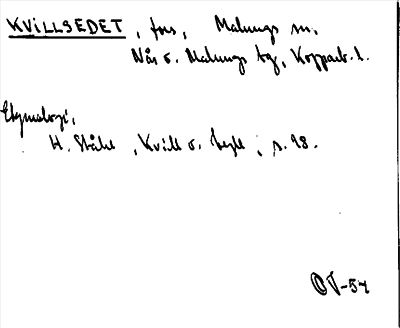 KVILLSEDET, fors, Malungs sn.
Nås o. Malungs tg, Kopparb. l.
Etymologi,
H. Ståhl, Kvill o. tyll, s. 98.
-54